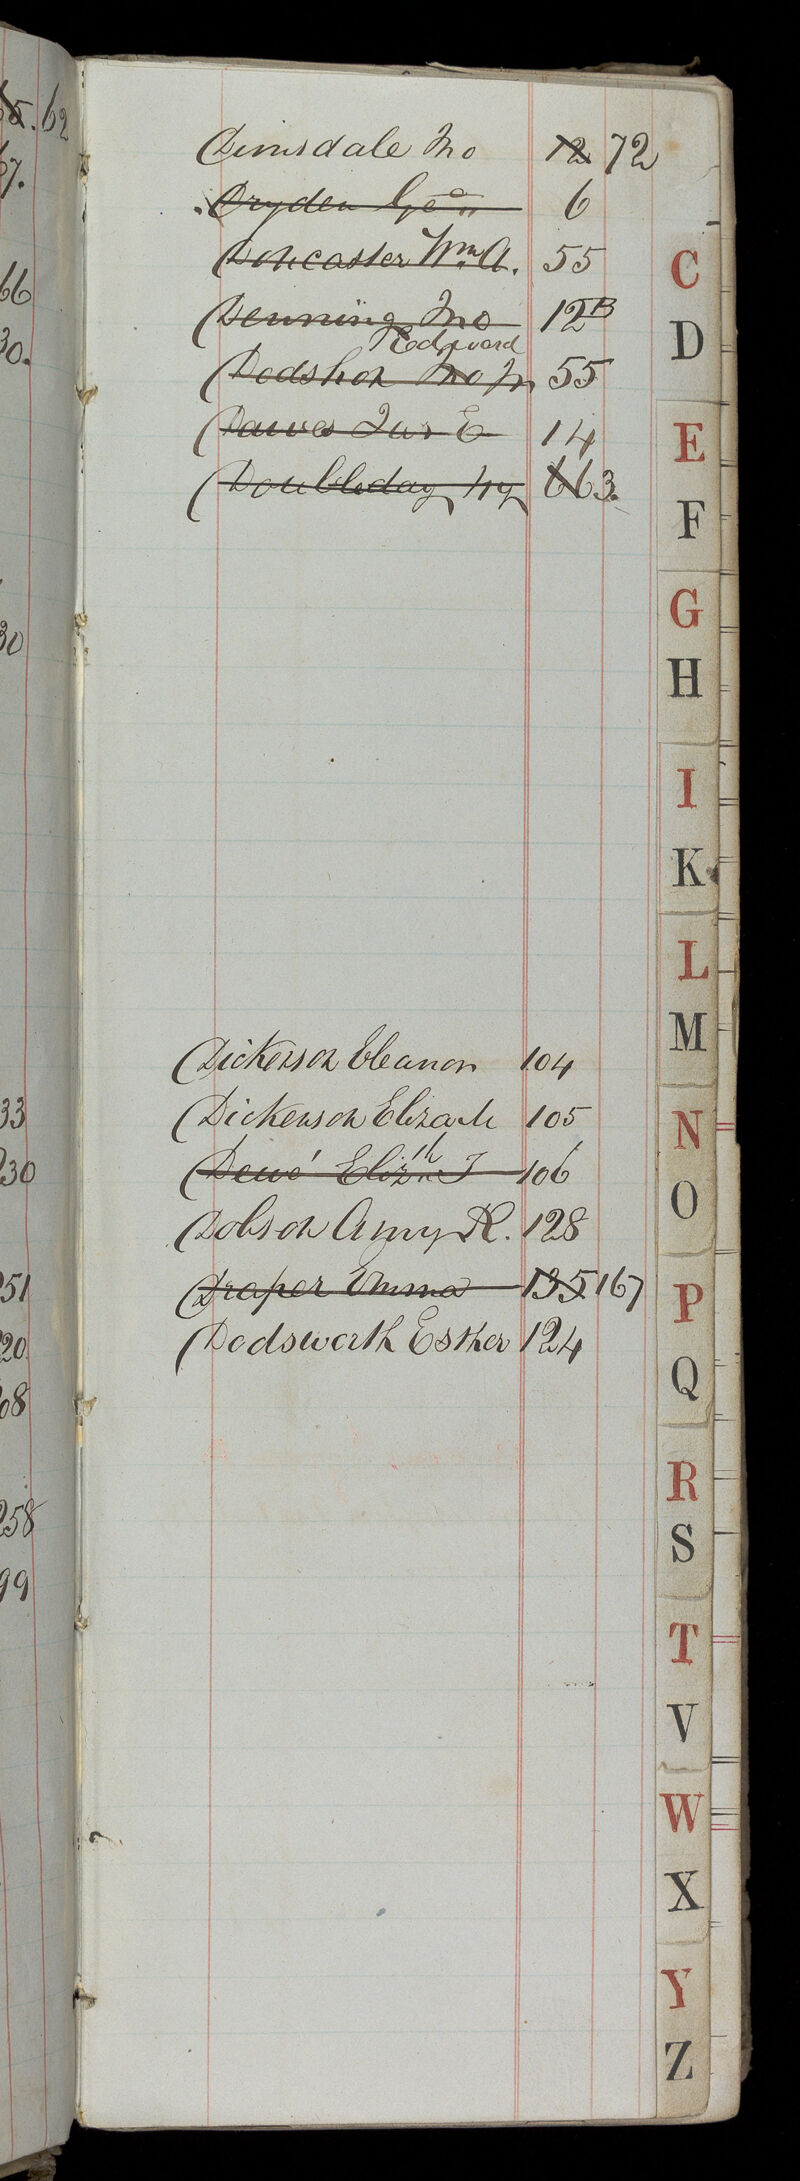 62
7.
66
30.
30
33
230
251
220
208
258
99
Dimsdale Jno 12 72
Dryden Geo 6
Doncaster Wm A. 55
Denning Jno 12B
Edward
Dodshon Jno Jr 55
Dawes Jas E 14
Doubleday Hy 6 63.
Dickenson Eleanor 104
Dickenson Elizath 105
Dewé Elizth J 106
Dobson Amy R. 128
Draper Emma 135 167
Dodsworth Esther 124
C
D
E
F
G
H
I
K
L
M
N
O
P
Q
R
S
T
V
W
X
Y
Z